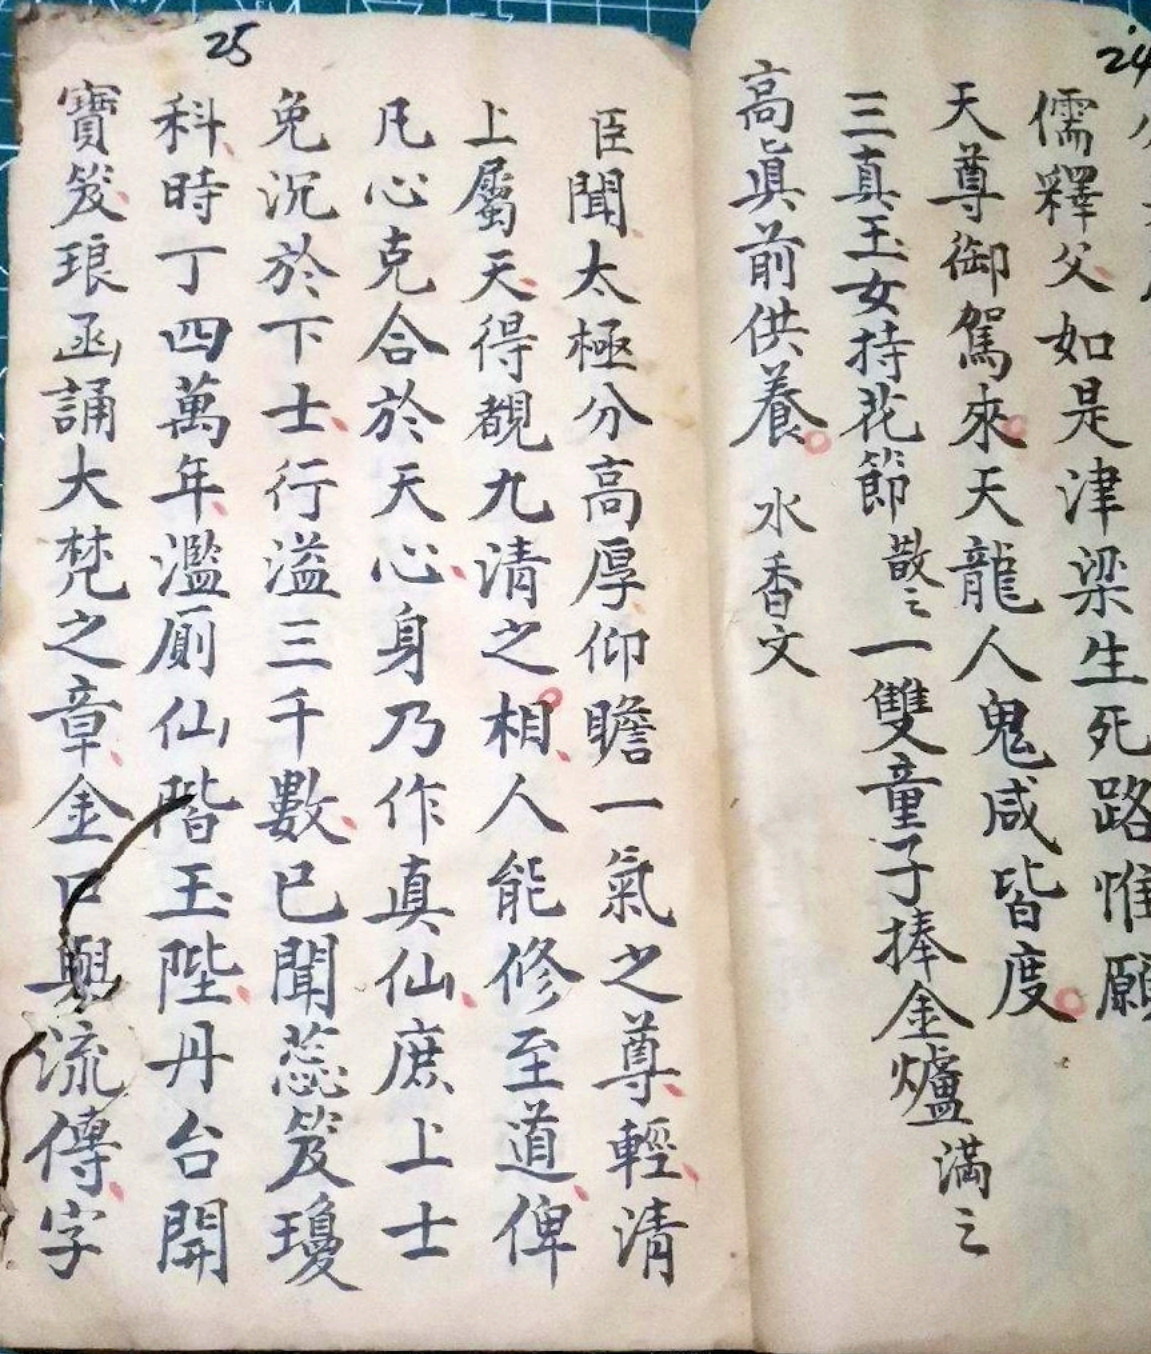 24
儒釋父如是津梁生死路惟願
天尊御駕來天龍人鬼咸皆度
三真玉女持花節散之一雙童子捧金爐滿之
高真前供養 水香文
25
臣聞太極分高厚仰瞻一氣之尊輕清
上屬天得覩九清之相人能修至道俾
凡心克合於天心身乃作真仙庶上士
免沉於下士行溢三千數已聞蕊笈瓊
科時丁四萬年濫廁仙階玉陛丹台開
寶笈琅函誦大梵之章金口與流傳字